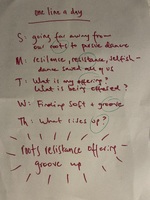 one line a day
S: going far away from
our roots to pursue dance
M: resilience, resistance, selfish -
dance saved all of us
T: What is my offering?
What is being offered?
W: Finding soft & groove
Th: What rises up?
roots resistance offering -
groove up